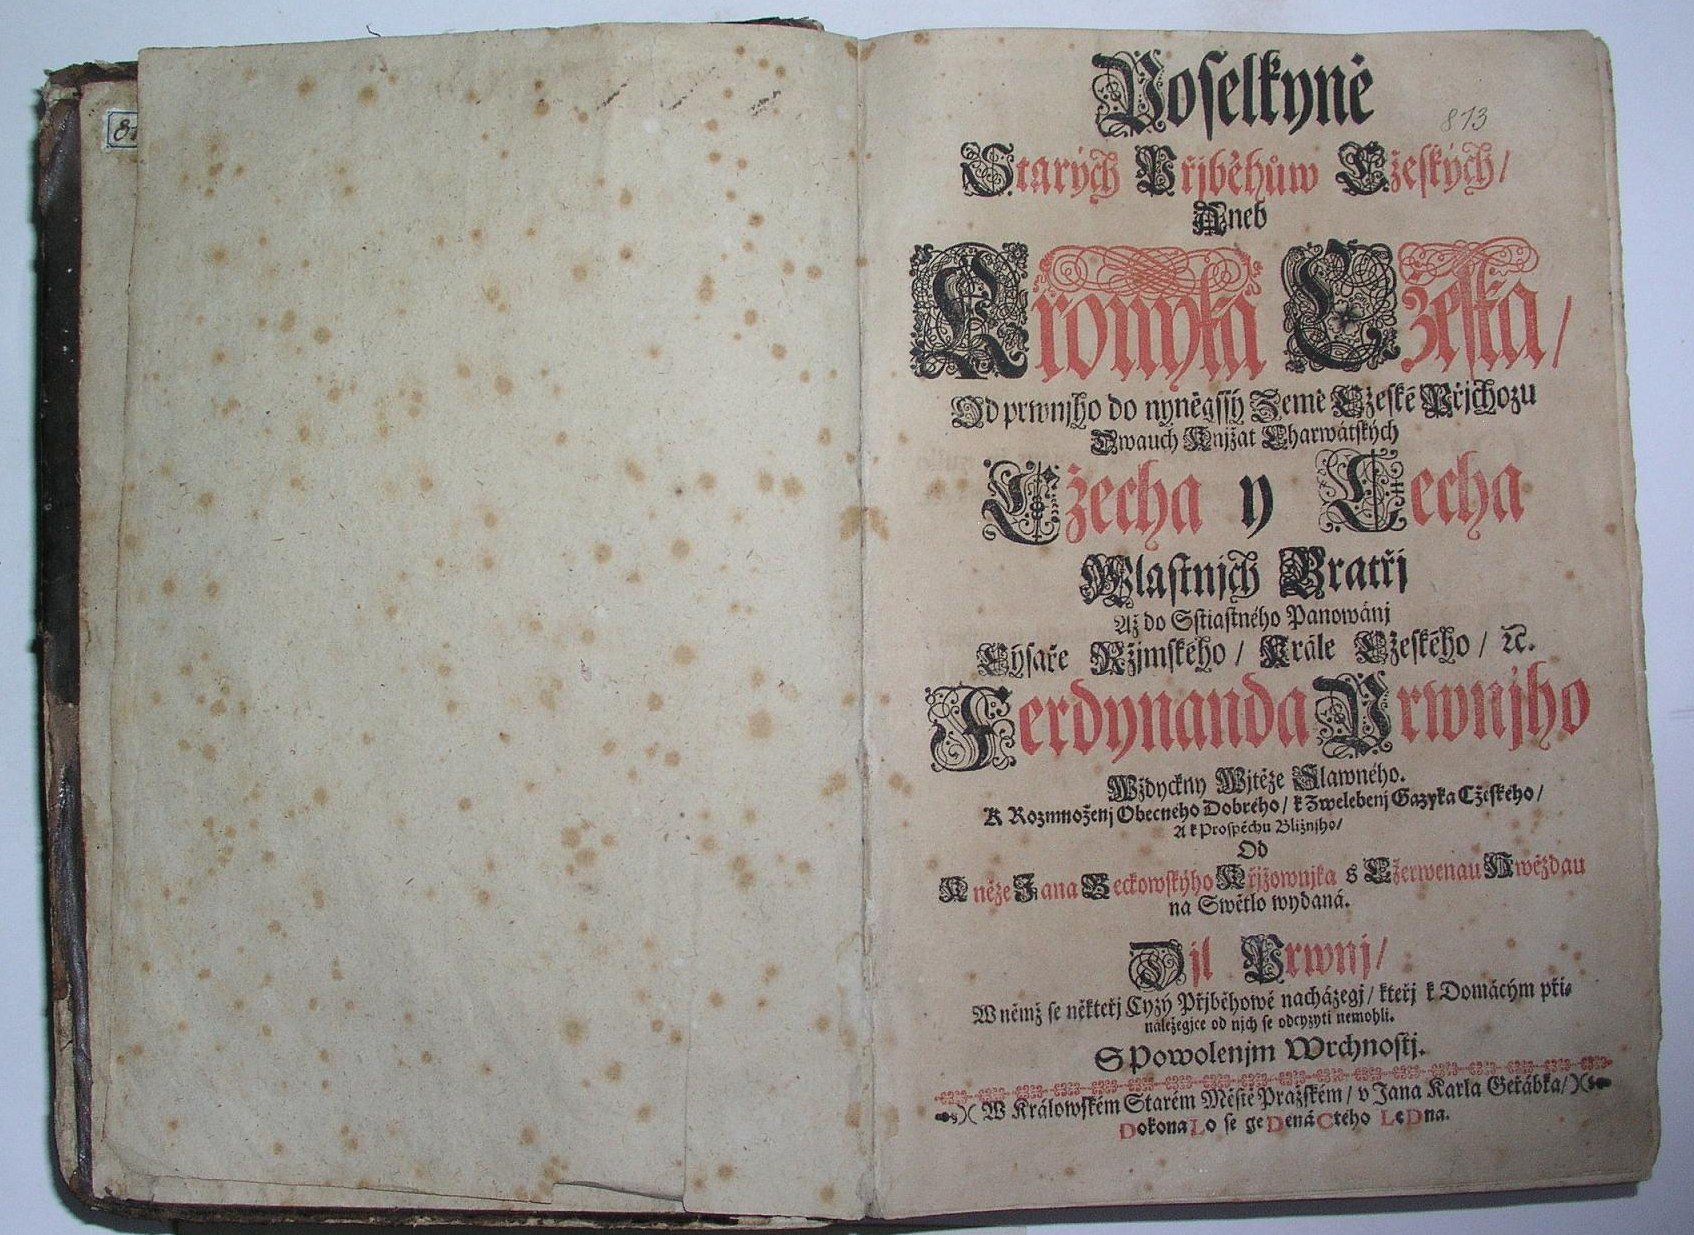 Poselkyně
813
Starých Přjběhůw Cžeských/
Aneb
Kronyka Cžeská/
Od prwnjho do nyněgssý Země Cžeské Přjchozu
Dwauch Knjžat Charwátských
Cžecha y Lecha
Wlastnjch Bratřj
Až do Sstiastného Panowánj
Cýsaře Ržjmského/ Krále Cžeského/ ꝛc.
Ferdynanda Prwnjho
Wždyckny Wjtěze Slawného.
K Rozmnoženj Obecneho Dobrého/ k Zwelebenj Gazyka Cžeského/
A k Prospěchu Bližnjho/
Od
Kněze Jana Beckowskýho Křjžownjka s Cžerwenau Hwězdau
na Swětlo wydaná.
Djl Prwnj/
W němž se někteřj Cyzý Přjběhowé nacházegj/ kteřj k Domácým při-
náležegjce od njch se odcyzyti nemohli.
S Powolenjm Wrchnostj.
W Králowském Starém Městě Pražském/ v Jana Karla Geřábka/
DokonaLo se geDenáCteho LeDna.